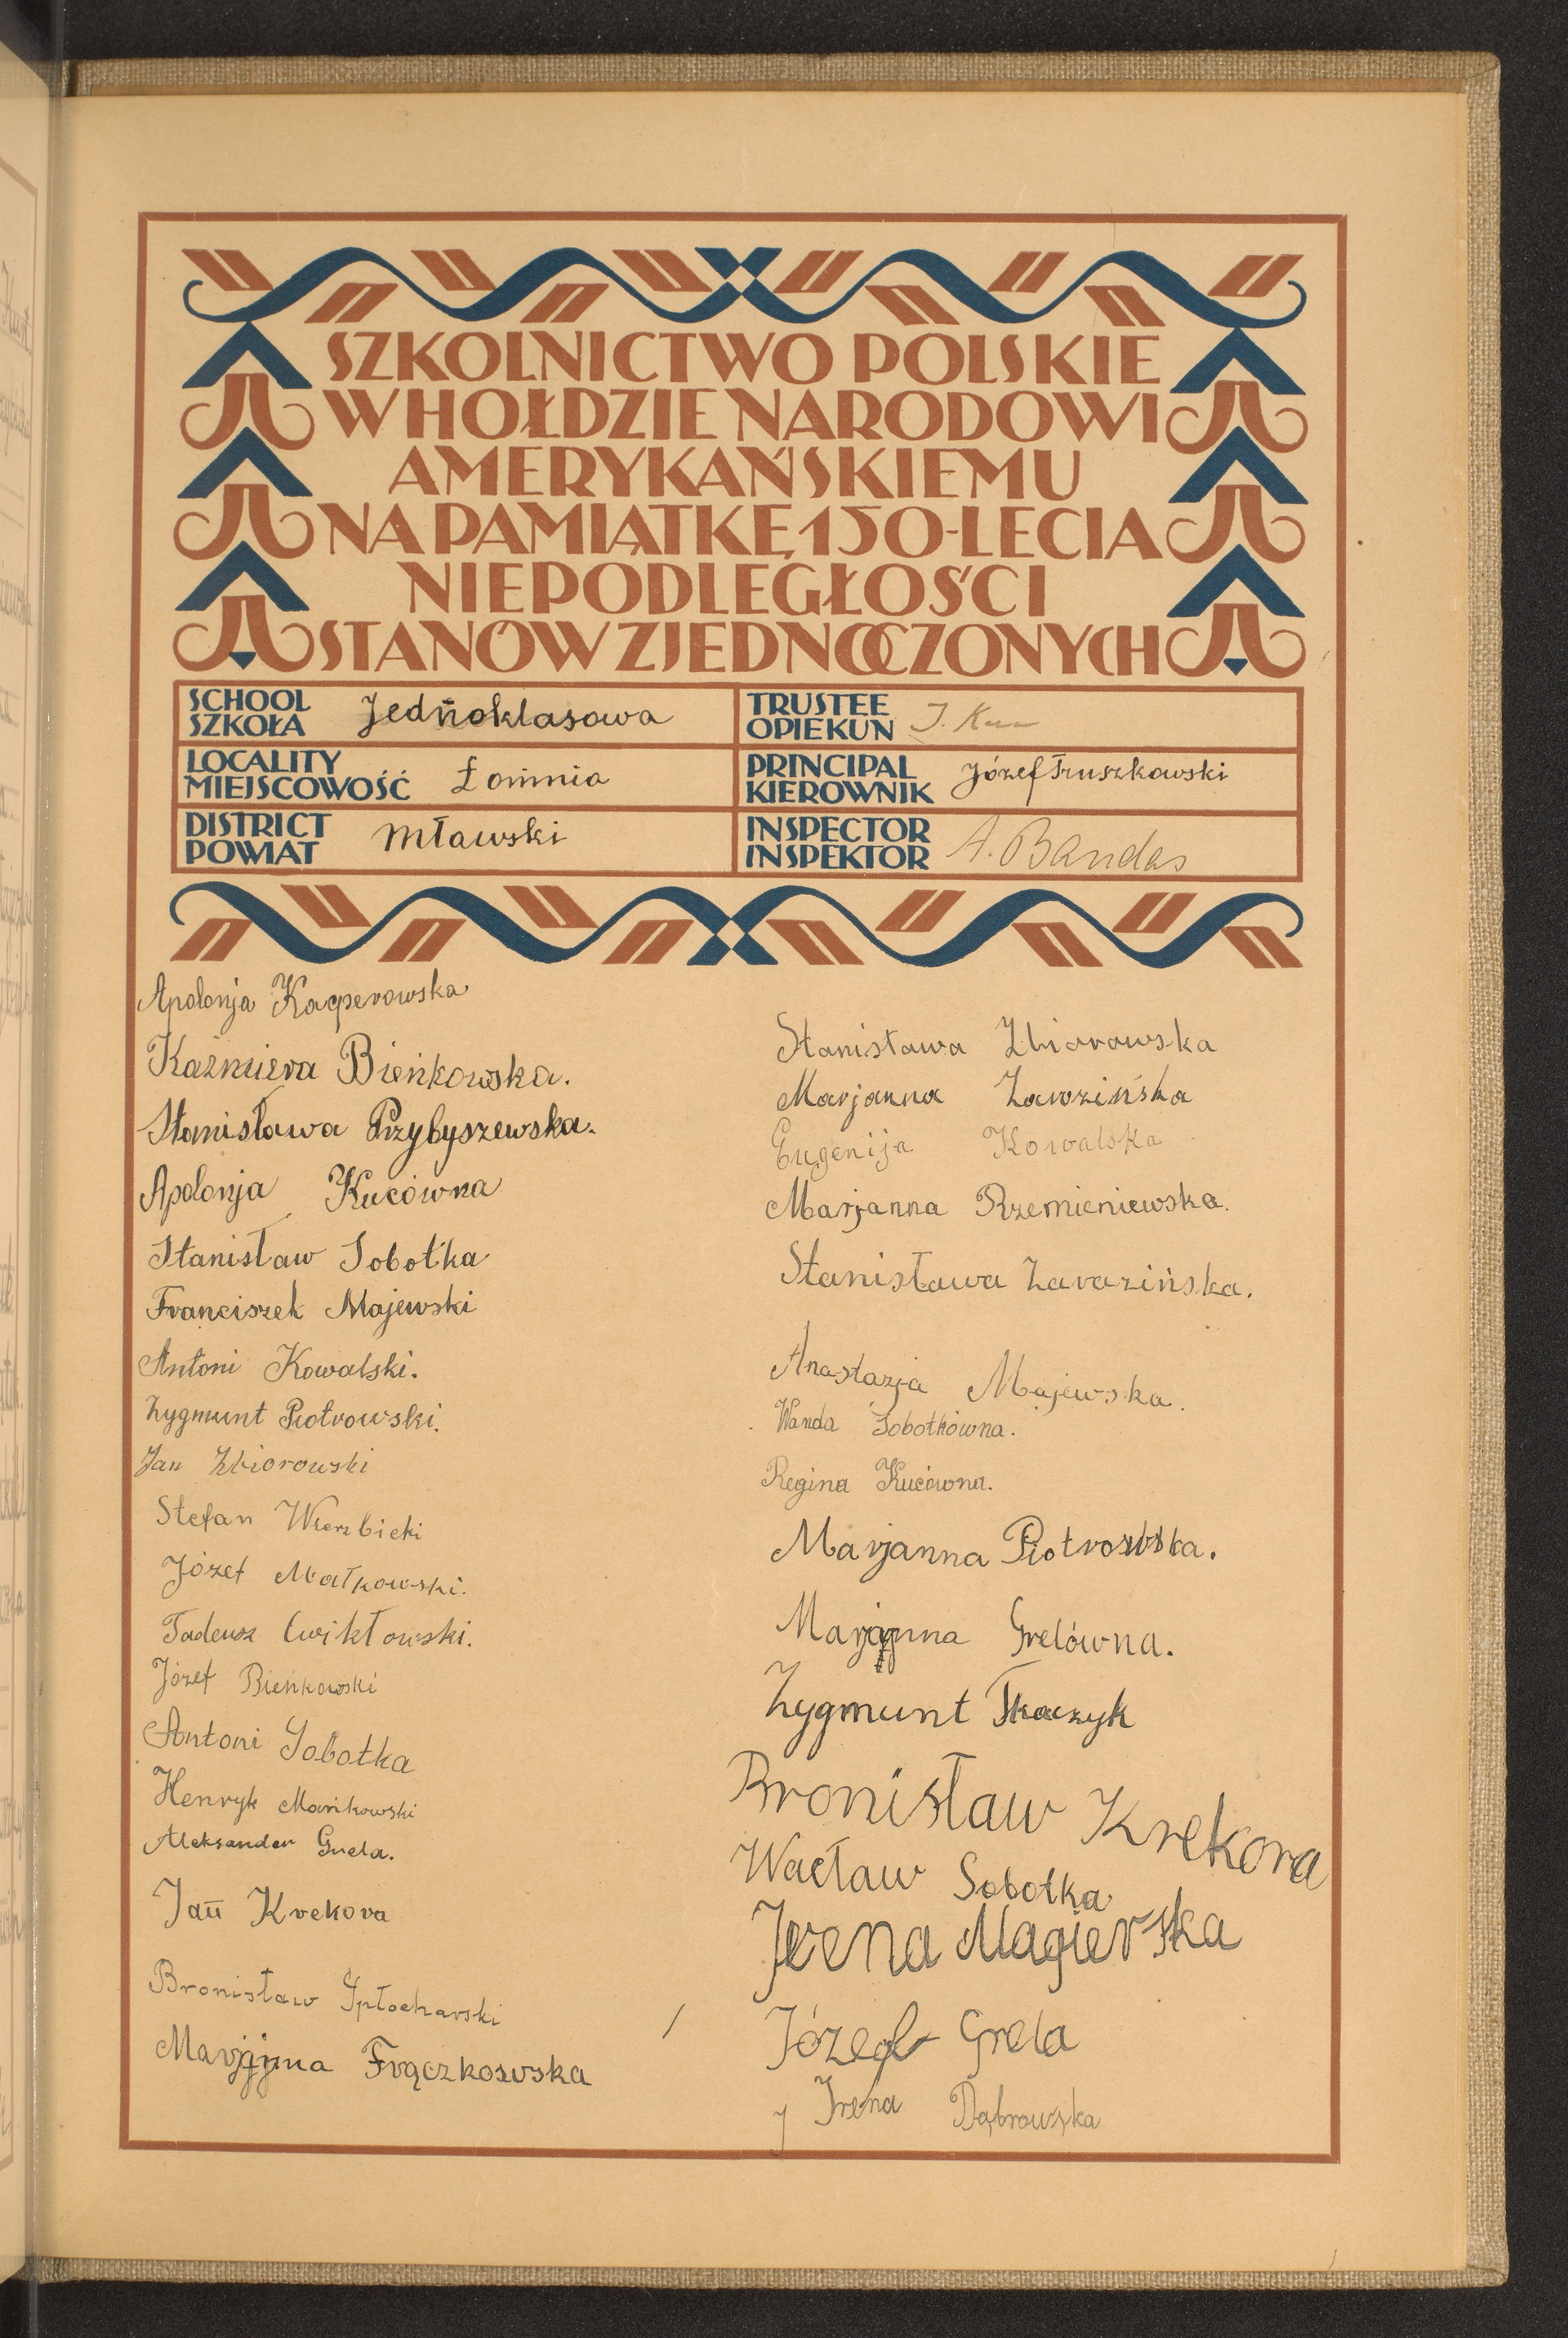 SZKOLNICTWO POLSKIE
W HOŁDZIE NARODOWI
AMERYKAŃSKIEMU
NA PAMIĄTKĘ 150-LECIA
NIEPODLEGŁOŚCI
STANÓW ZJEDNOCZONYCH
SCHOOL
SZKOŁA
Jednoklasowa
TRUSTEE
OPIEKUN
LOCALITY
MIEJSCOWOŚĆ
Łomnia
PRINCIPAL
KIEROWNIK
Józef Truszkowski
DISTRICT
POWIAT
Mławski
INSPECTOR
INSPEKTOR
A. Bandas
Apolonja Kacperowska
Kaźmiera Bieńkowska.
Stanisława Przybyszewska.
Apolonja Kucówna
Stanisław Sobotka
Franciszek Majewski
Antoni Kowalski.
Zygmunt Piotrowski.
Jan Zbiorowski
Stefan Wierzbicki
Józef Małkowski.
Tadeusz Cwikłowski.
Józef Bieńkowski
Antoni Sobotka
Henryk Mańkowski
Aleksander Grela.
Jan Krekora
Bronisław
Marjanna Frączkowska
Stanisława Zbiorowska
Marjanna Zarozińska
Eugenija Kowalska
Marjanna Rzemieniewska.
Stanisława Zarazińska.
Anastazja Majewska.
Wanda Sobotkówna.
Regina Kucówna.
Marjanna Piotrowska.
Marjanna Grelówna.
Zygmunt Tkaczyk
Bronisław Krekora
Wacław Sobotka
Irena Magierska
Józef Grela
Irena Dąbrowska